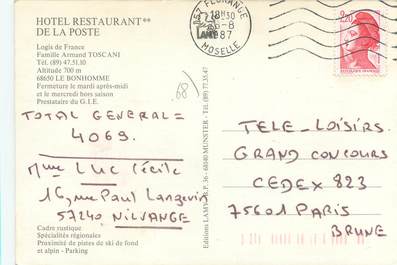 HOTEL RESTAURANT**
DE LA POSTE
Logis de France
Famille Armand TOSCANI
Tél. (89) 47.51.10
Altitude 700 m
68650 LE BONHOMME
Fermeture le mardi après-midi
et le mercredi hors saison
Prestataire du G.I.E.
(68)
TOTAL GENERAL =
4069.
Mme LUC Cécile
16, rue Paul Langevin
57240 NILVANGE
Cadre rustique
Spécialités régionales
Proximité de pistes de ski de fond
et alpin - Parking
Editions LAMY - B.P. 36 - 68140 MUNSTER - Tél. (89) 77.35.47
57 FLORANGE
18H30
26-8
1987
MOSELLE
2,20
TELE-LOISIRS
GRAND CONCOURS
CEDEX 823
75601 PARIS
BRUNE